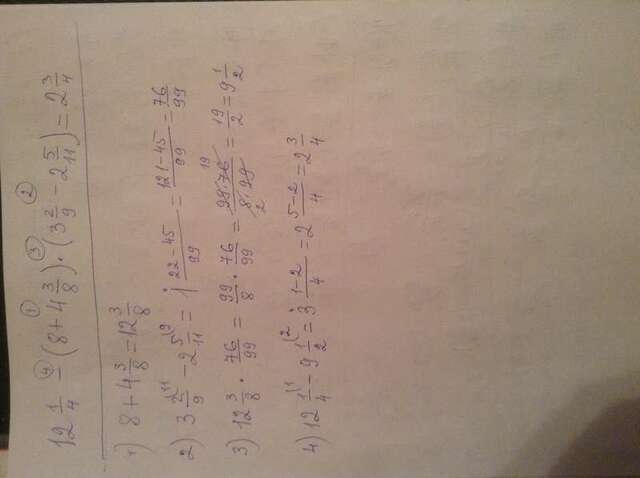 12 1/4 - (8 + 4 3/8) · (3 2/9 - 2 5/11) = 2 3/4
④ ① ③ ②
1) 8 + 4 3/8 = 12 3/8
2) 3 2/9 \11 - 2 5/11 \9 = 1 (22-45)/99 = (121-45)/99 = 76/99
3) 12 3/8 · 76/99 = 99/8 · 76/99 = (99·76)/(8·99) 19 2 = 19/2 = 9 1/2
4) 12 1/4 \1 - 9 1/2 \2 = 3 (1-2)/4 = 2 (5-2)/4 = 2 3/4